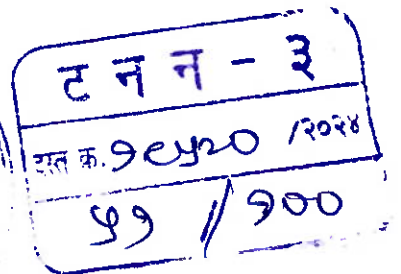 ट न न - ३
दस्त क्र. १९५२० /२०२४
५१ // १००